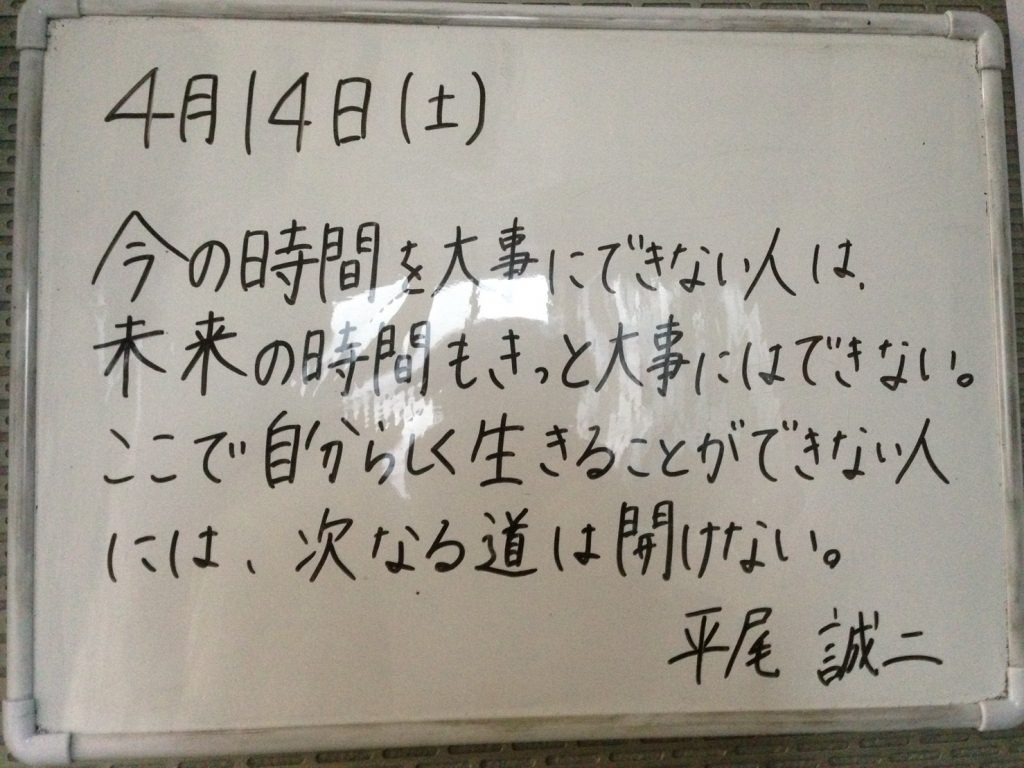 4月14日(土)
今の時間を大事にできない人は、
未来の時間もきっと大事にはできない。
ここで自分らしく生きることができない人
には、次なる道は開けない。
平尾 誠二